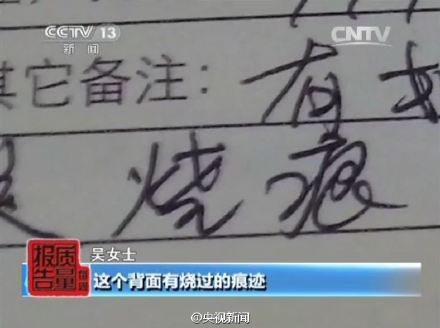 CCTV 13
新闻
CNTV
其它备注：有
烧痕
质量报告
吴女士
这个背面有烧过的痕迹
@央视新闻